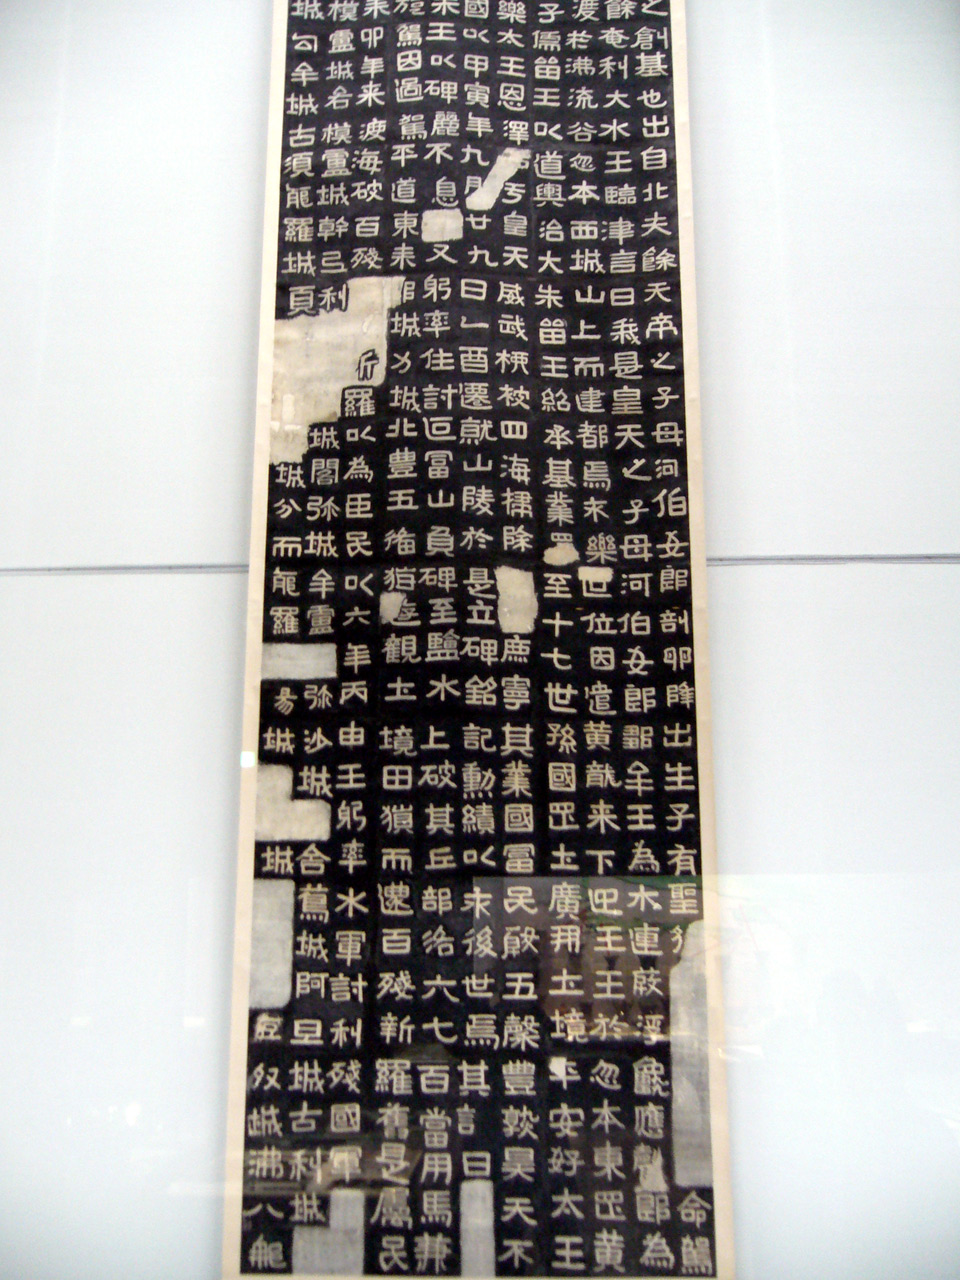 之創基也出自北夫餘天帝之子母河伯女郎剖卵降出生子有聖命駕
餘奄利大水王臨津言曰我是皇天之子母河伯女郎鄒牟王為木連葭浮龜應聲即為
渡於沸流谷忽本西城山上而建都焉永樂世位因遣黃龍来下迎王王於忽本東罡黃
子儒留王以道輿治大朱留王紹承基業至十七世孫國罡上廣開土境平安好太王
樂太王恩澤于皇天威武柳被四海掃除庶寧其業國富民殷五穀豐熟昊天不
國以甲寅年九月廿九日乙酉遷就山陵於是立碑銘記勳績以永後世焉其詞曰
永王以碑麗不息又躬率住討叵富山負碑至鹽水上破其丘部洛六七百當用馬兼
旋駕因過駕平道東来城力城北豐五備猶遊觀土境田獵而還百殘新羅舊是屬民
卯年来渡海破百殘斤羅以為臣民以六年丙申王躬率水軍討利殘國軍
模盧城若模盧城幹弓利城閣弥城牟盧城弥沙城舍蔦城阿旦城古利城
城勾牟城古須龍羅城頁城分而龍羅昜城城奴城沸八